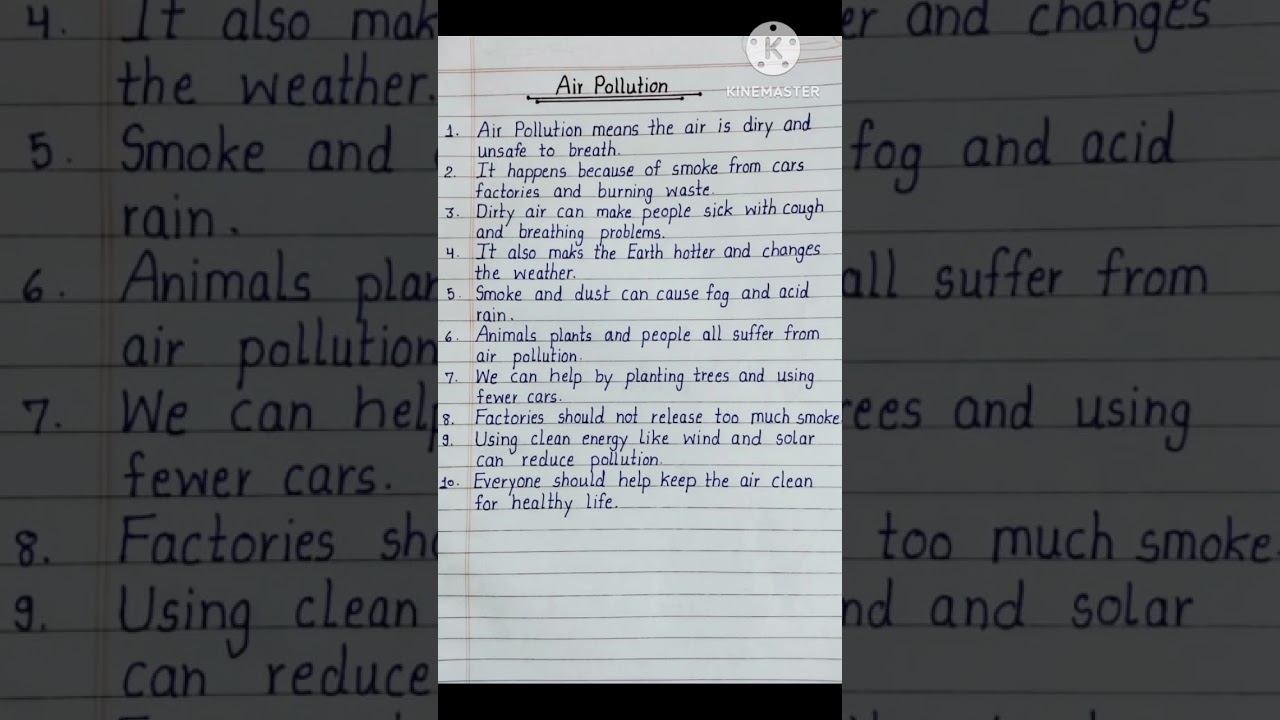 KINEMASTER
Air Pollution
1. Air Pollution means the air is diry and
unsafe to breath.
2. It happens because of smoke from cars
factories and burning waste.
3. Dirty air can make people sick with cough
and breathing problems.
4. It also maks the Earth hotter and changes
the weather.
5. Smoke and dust can cause fog and acid
rain.
6. Animals plants and people all suffer from
air pollution.
7. We can help by planting trees and using
fewer cars.
8. Factories should not release too much smoke
9. Using clean energy like wind and solar
can reduce pollution.
10. Everyone should help keep the air clean
for healthy life.